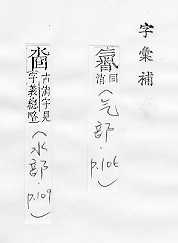 字彙補
同
消
(气部. p.106)
古字見
字義總略
(水部. p.109)